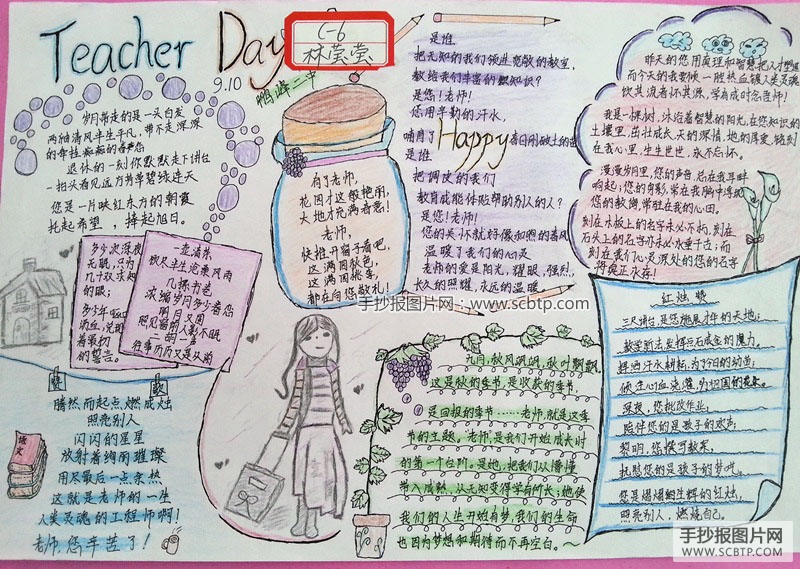 Teacher Day
9.10
C-6
林莹莹
鸭峰二中
岁月带走的是一头白发
两袖清风半生平凡，带不走深深
的牵挂
退休的一刻你默默走下讲台
一抬头看见远方芳草碧绿连天
您是一片映红东方的朝霞
托起希望，捧起旭日。
多少次深夜
无眠，只为
几十双求知
的眼；
多少年呕心
沥血，兑现
着最初
的誓言。
一壶清茶
饮尽半生沧桑风雨
几课书走
浓缩岁月多少春
明月又圆
照见窗前人影不眠
往事历历又是从前
腾然而起点燃成灿
照亮别人
闪闪的星星
放射着绚丽璀璨
用尽最后一点余热
这就是老师的一生
人类灵魂的工程师啊！
老师，您辛苦了！
语文
有了老师，
花园才这般艳丽，
大地才充满春意！
老师，
快推开窗子看吧，
这满园秋色，
这满园桃李，
都在向您敬礼！
是谁
把无知的我们领进宽敞的教室，
教给我们丰富的知识？
是您！老师！
您用辛勤的汗水，
哺育了
Happy
春日刚破土的
是谁
把调皮的我们
教育成能体贴帮助别人的人？
是您！老师！
您的关怀就好像和煦的春风
温暖了我们的心灵
老师的爱是阳光，耀眼，强烈，
长久的照耀，永远的温暖
手抄报图片网：www.scbtp.com
昨天的您用真理和智慧把人才塑造
而今天的我要倾一腔热血铸人类灵魂
饮其流者怀其源，学有成时念吾师！
我是一棵树，沐浴着智慧的阳光，在您知识的
土壤里，茁壮成长，天的深情，地的厚爱，铭刻
在我心里，生生世世，永不忘怀。
漫漫岁月里，您的声音，总在我耳畔
响起；您的身影，常在我脑中浮现
您的教诲，常驻在我的心田。
刻在木板上的名字未必不朽，刻在
石头上的名字亦未必永垂千古；而
刻在我们心灵深处的您的名字
将真正永存！
红烛颂
三尺讲台，是您施展才华的天地；
教学新法，发挥点石成金的魔力。
挥洒汗水耕耘，为了今日的幼苗，
倾注心血浇灌，为祖国的未来。
深夜，您批改作业，
陪伴您的是孩子的欢声
黎明，您撰写教案，
抚慰您的是孩子的梦呓。
您是熠熠生辉的红烛，
照亮别人，燃烧自己。
九月，秋风飒飒，秋叶飘飘，
这是秋的季节，是收获的季节，
是回报的季节……老师，就是这季
节的主题。老师，是我们开始成长时
的第一个台阶。是她，把我们从懵懂
带入成熟，从无知变得学有所长；她使
我们的人生开始有梦，我们的生命
也因为梦想和期待而不再空白。～
手抄报图片网
WWW.SCBTP.COM